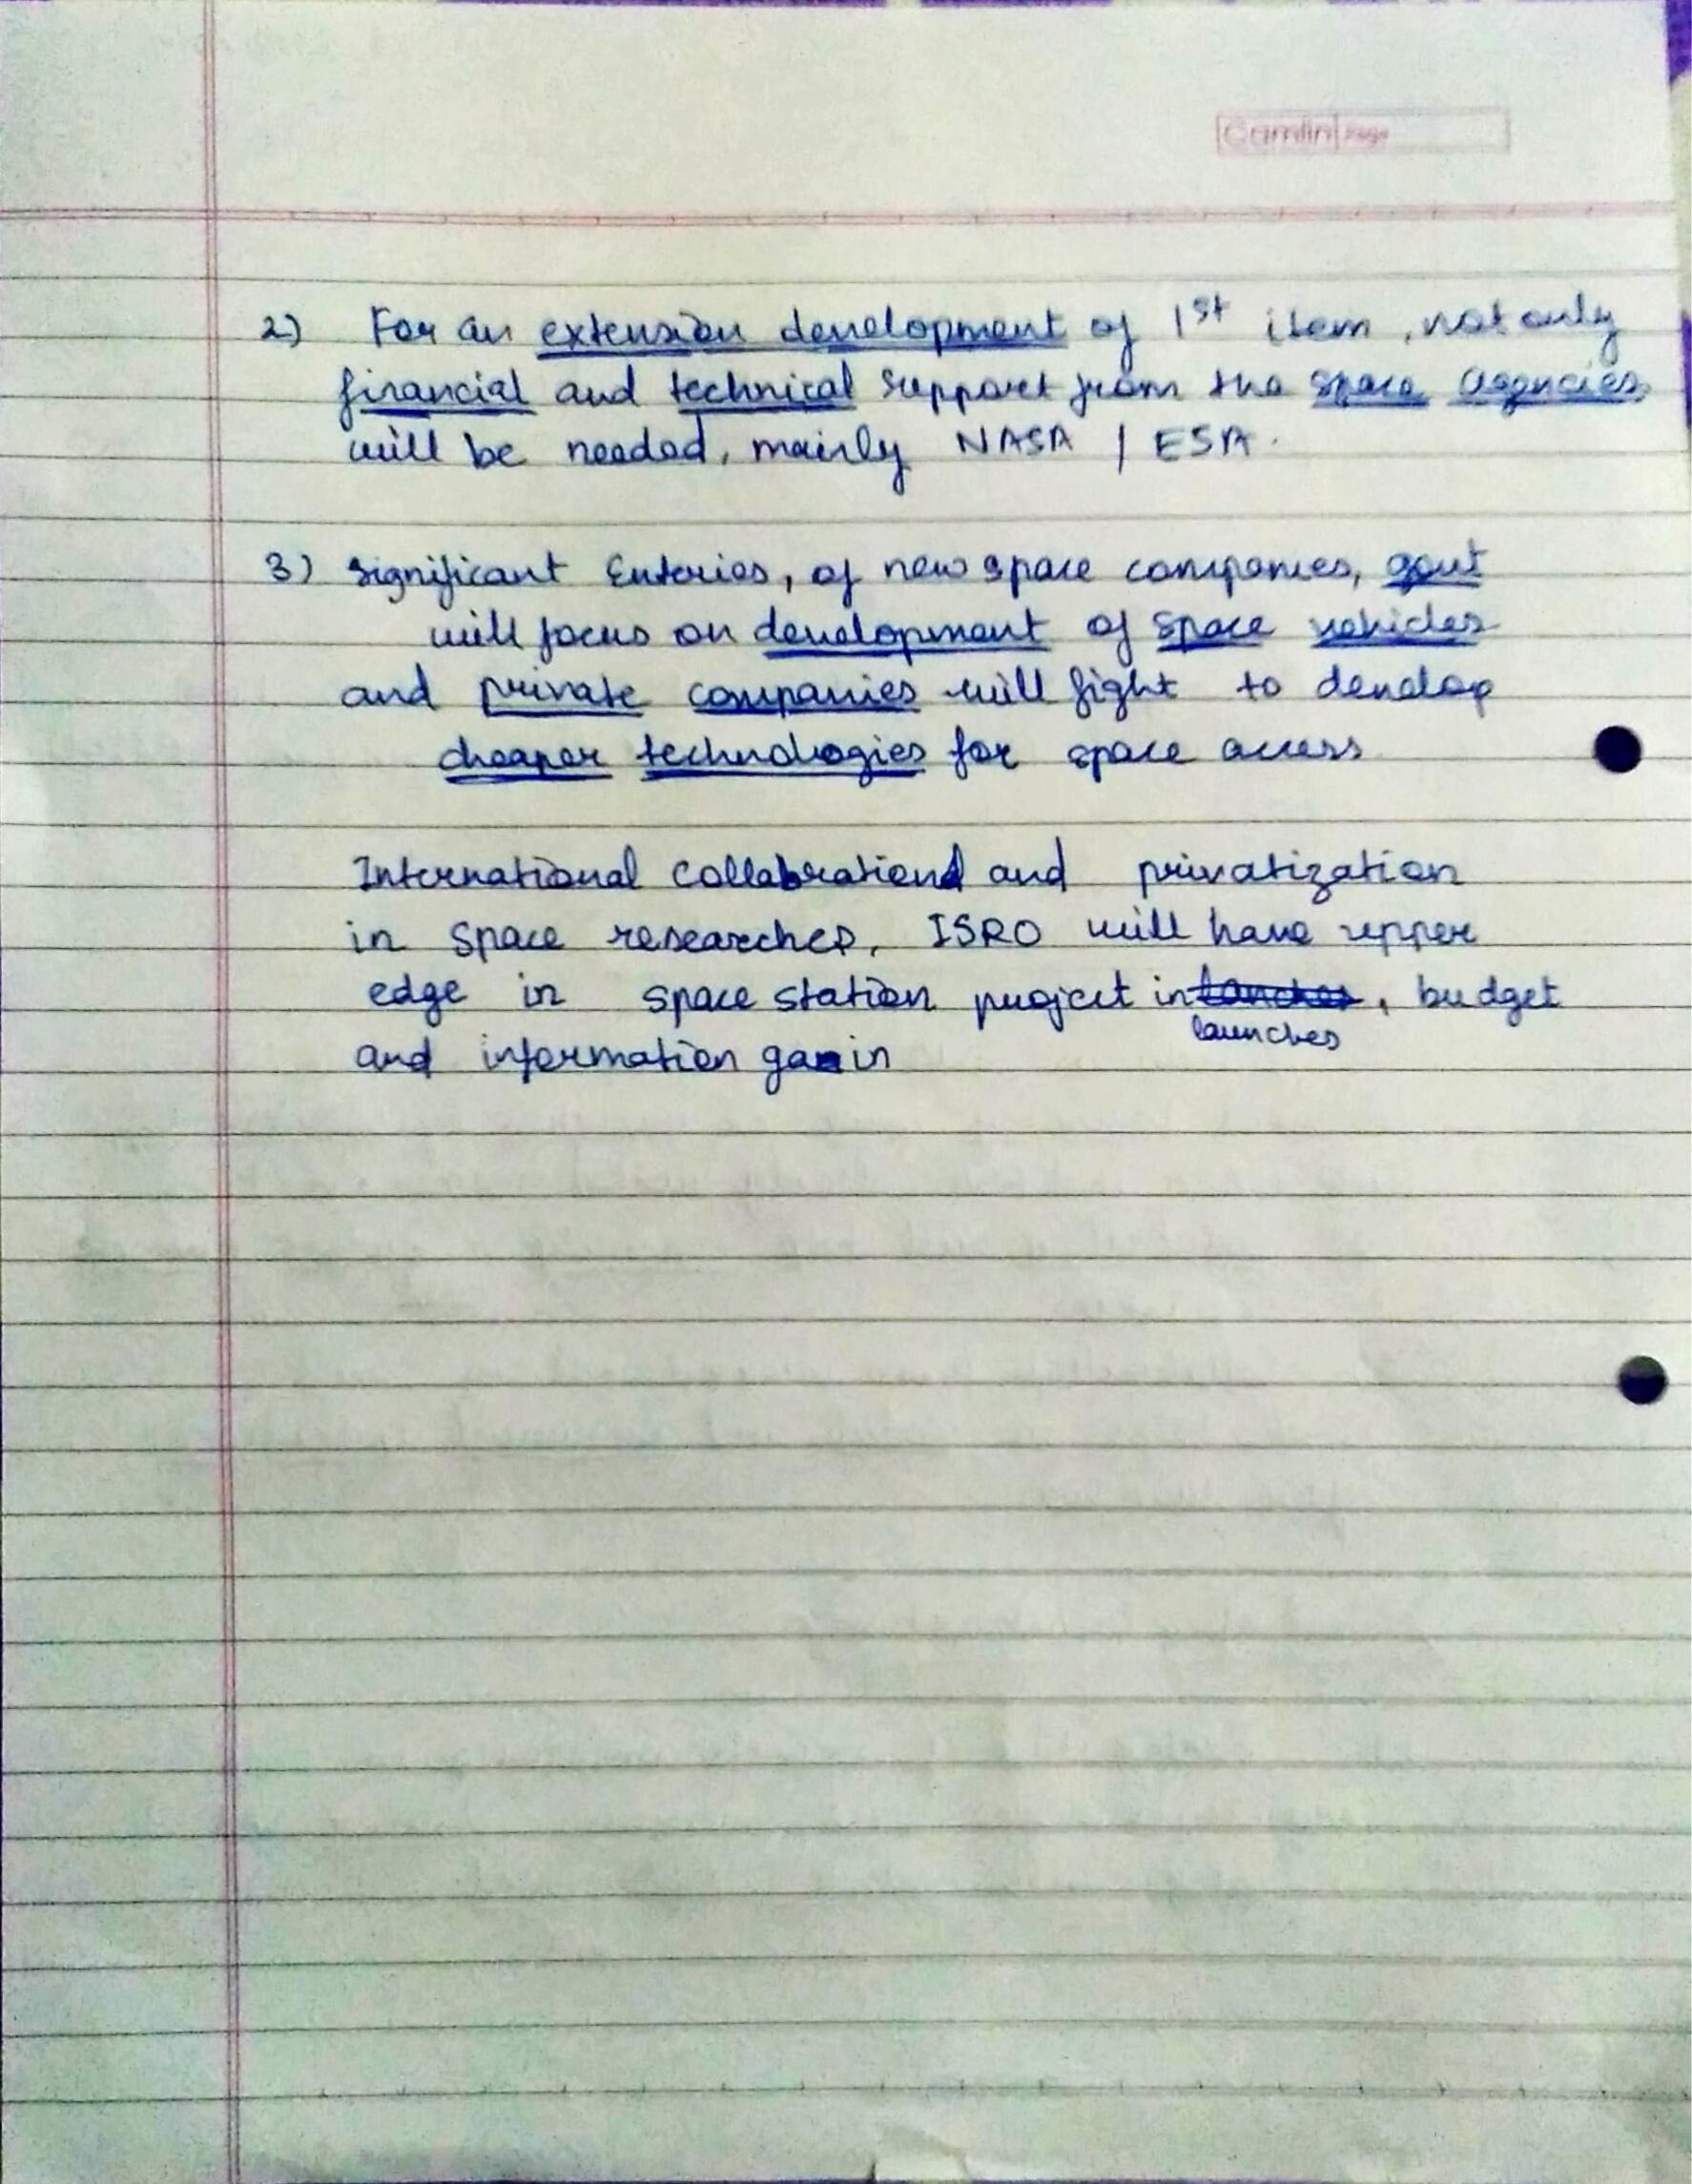 Camlin Page
2) For an extension development of 1st item, not only
financial and technical support from the space agencies
will be needed, mainly NASA / ESA.
3) Significant Enteries, of new space companies, govt
will focus on development of space vehicles
and private companies will fight to develop
cheaper technologies for space access
International Collabration and privatization
in space researches, ISRO will have upper
edge in space station project in launches, budget
and information gain